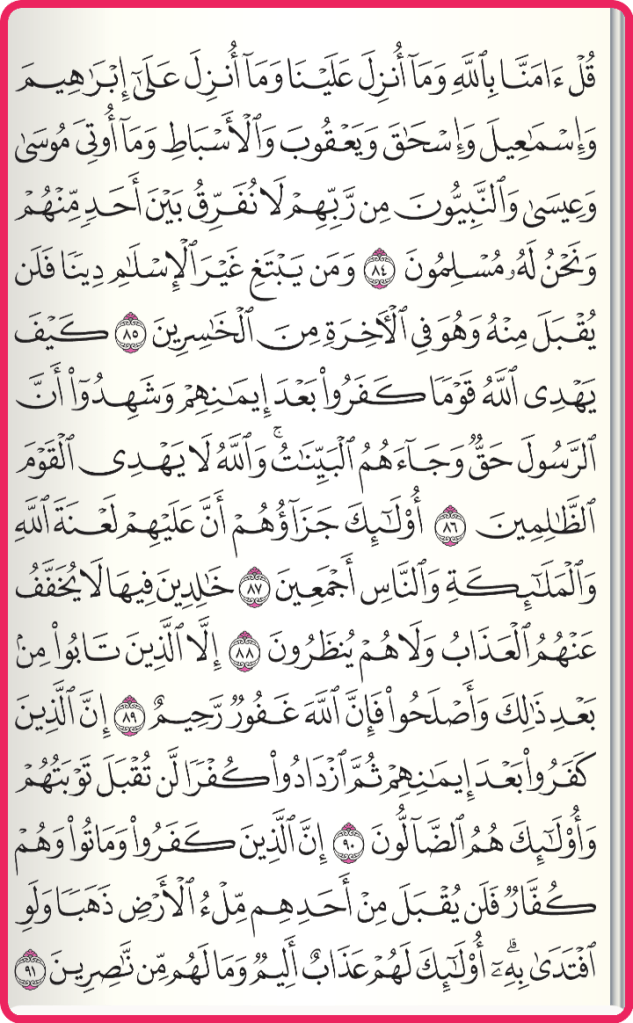 قُلۡ ءَامَنَّا بِٱللَّهِ وَمَآ أُنزِلَ عَلَيۡنَا وَمَآ أُنزِلَ عَلَىٰٓ إِبۡرَٰهِيمَ
وَإِسۡمَٰعِيلَ وَإِسۡحَٰقَ وَيَعۡقُوبَ وَٱلۡأَسۡبَاطِ وَمَآ أُوتِيَ مُوسَىٰ
وَعِيسَىٰ وَٱلنَّبِيُّونَ مِن رَّبِّهِمۡ لَا نُفَرِّقُ بَيۡنَ أَحَدٖ مِّنۡهُمۡ
وَنَحۡنُ لَهُۥ مُسۡلِمُونَ ٨٤ وَمَن يَبۡتَغِ غَيۡرَ ٱلۡإِسۡلَٰمِ دِينٗا فَلَن
يُقۡبَلَ مِنۡهُ وَهُوَ فِي ٱلۡأٓخِرَةِ مِنَ ٱلۡخَٰسِرِينَ ٨٥ كَيۡفَ
يَهۡدِي ٱللَّهُ قَوۡمٗا كَفَرُواْ بَعۡدَ إِيمَٰنِهِمۡ وَشَهِدُوٓاْ أَنَّ
ٱلرَّسُولَ حَقّٞ وَجَآءَهُمُ ٱلۡبَيِّنَٰتُۚ وَٱللَّهُ لَا يَهۡدِي ٱلۡقَوۡمَ
ٱلظَّٰلِمِينَ ٨٦ أُوْلَٰٓئِكَ جَزَآؤُهُمۡ أَنَّ عَلَيۡهِمۡ لَعۡنَةَ ٱللَّهِ
وَٱلۡمَلَٰٓئِكَةِ وَٱلنَّاسِ أَجۡمَعِينَ ٨٧ خَٰلِدِينَ فِيهَا لَا يُخَفَّفُ
عَنۡهُمُ ٱلۡعَذَابُ وَلَا هُمۡ يُنظَرُونَ ٨٨ إِلَّا ٱلَّذِينَ تَابُواْ مِنۢ
بَعۡدِ ذَٰلِكَ وَأَصۡلَحُواْ فَإِنَّ ٱللَّهَ غَفُورٞ رَّحِيمٌ ٨٩ إِنَّ ٱلَّذِينَ
كَفَرُواْ بَعۡدَ إِيمَٰنِهِمۡ ثُمَّ ٱزۡدَادُواْ كُفۡرٗا لَّن تُقۡبَلَ تَوۡبَتُهُمۡ
وَأُوْلَٰٓئِكَ هُمُ ٱلضَّآلُّونَ ٩٠ إِنَّ ٱلَّذِينَ كَفَرُواْ وَمَاتُواْ وَهُمۡ
كُفَّارٞ فَلَن يُقۡبَلَ مِنۡ أَحَدِهِم مِّلۡءُ ٱلۡأَرۡضِ ذَهَبٗا وَلَوِ
ٱفۡتَدَىٰ بِهِۦٓۗ أُوْلَٰٓئِكَ لَهُمۡ عَذَابٌ أَلِيمٞ وَمَا لَهُم مِّن نَّٰصِرِينَ ٩١